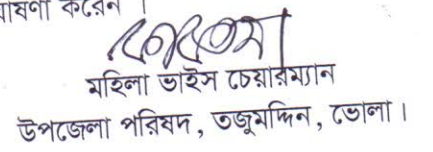 ঘোষণা করেন।
মহিলা ভাইস চেয়ারম্যান
উপজেলা পরিষদ, তজুমদ্দিন, ভোলা।